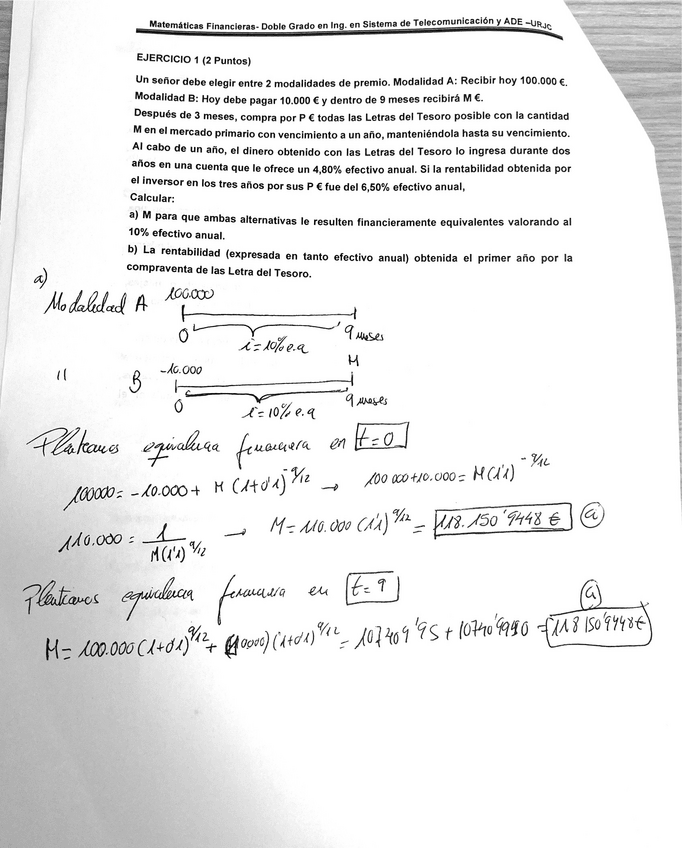 Matemáticas Financieras- Doble Grado en Ing. en Sistema de Telecomunicación y ADE –URJC
EJERCICIO 1 (2 Puntos)
Un señor debe elegir entre 2 modalidades de premio. Modalidad A: Recibir hoy 100.000 €.
Modalidad B: Hoy debe pagar 10.000 € y dentro de 9 meses recibirá M €.
Después de 3 meses, compra por P € todas las Letras del Tesoro posible con la cantidad
M en el mercado primario con vencimiento a un año, manteniéndola hasta su vencimiento.
Al cabo de un año, el dinero obtenido con las Letras del Tesoro lo ingresa durante dos
años en una cuenta que le ofrece un 4,80% efectivo anual. Si la rentabilidad obtenida por
el inversor en los tres años por sus P € fue del 6,50% efectivo anual,
Calcular:
a) M para que ambas alternativas le resulten financieramente equivalentes valorando al
10% efectivo anual.
b) La rentabilidad (expresada en tanto efectivo anual) obtenida el primer año por la
compraventa de las Letra del Tesoro.
a)
Modalidad A 100.000
0 i=10% e.a 9 meses
M
" B -10.000
0 i=10% e.a 9 meses
Planteamos equivalencia financiera en t=0
100000= -10.000+ M (1+0'1)^-9/12 → 100 000+10.000= M(1'1)^-9/12
110.000 = 1/M(1'1)^9/12 → M= 110.000 (1'1)^9/12 = 118.150'9448 € a)
Planteamos equivalencia financiera en t=9
a)
M= 100.000 (1+0'1)^9/12 + (10000) (1+0'1)^9/12 = 107409'95 + 10740'9990 = 118 150'9448€